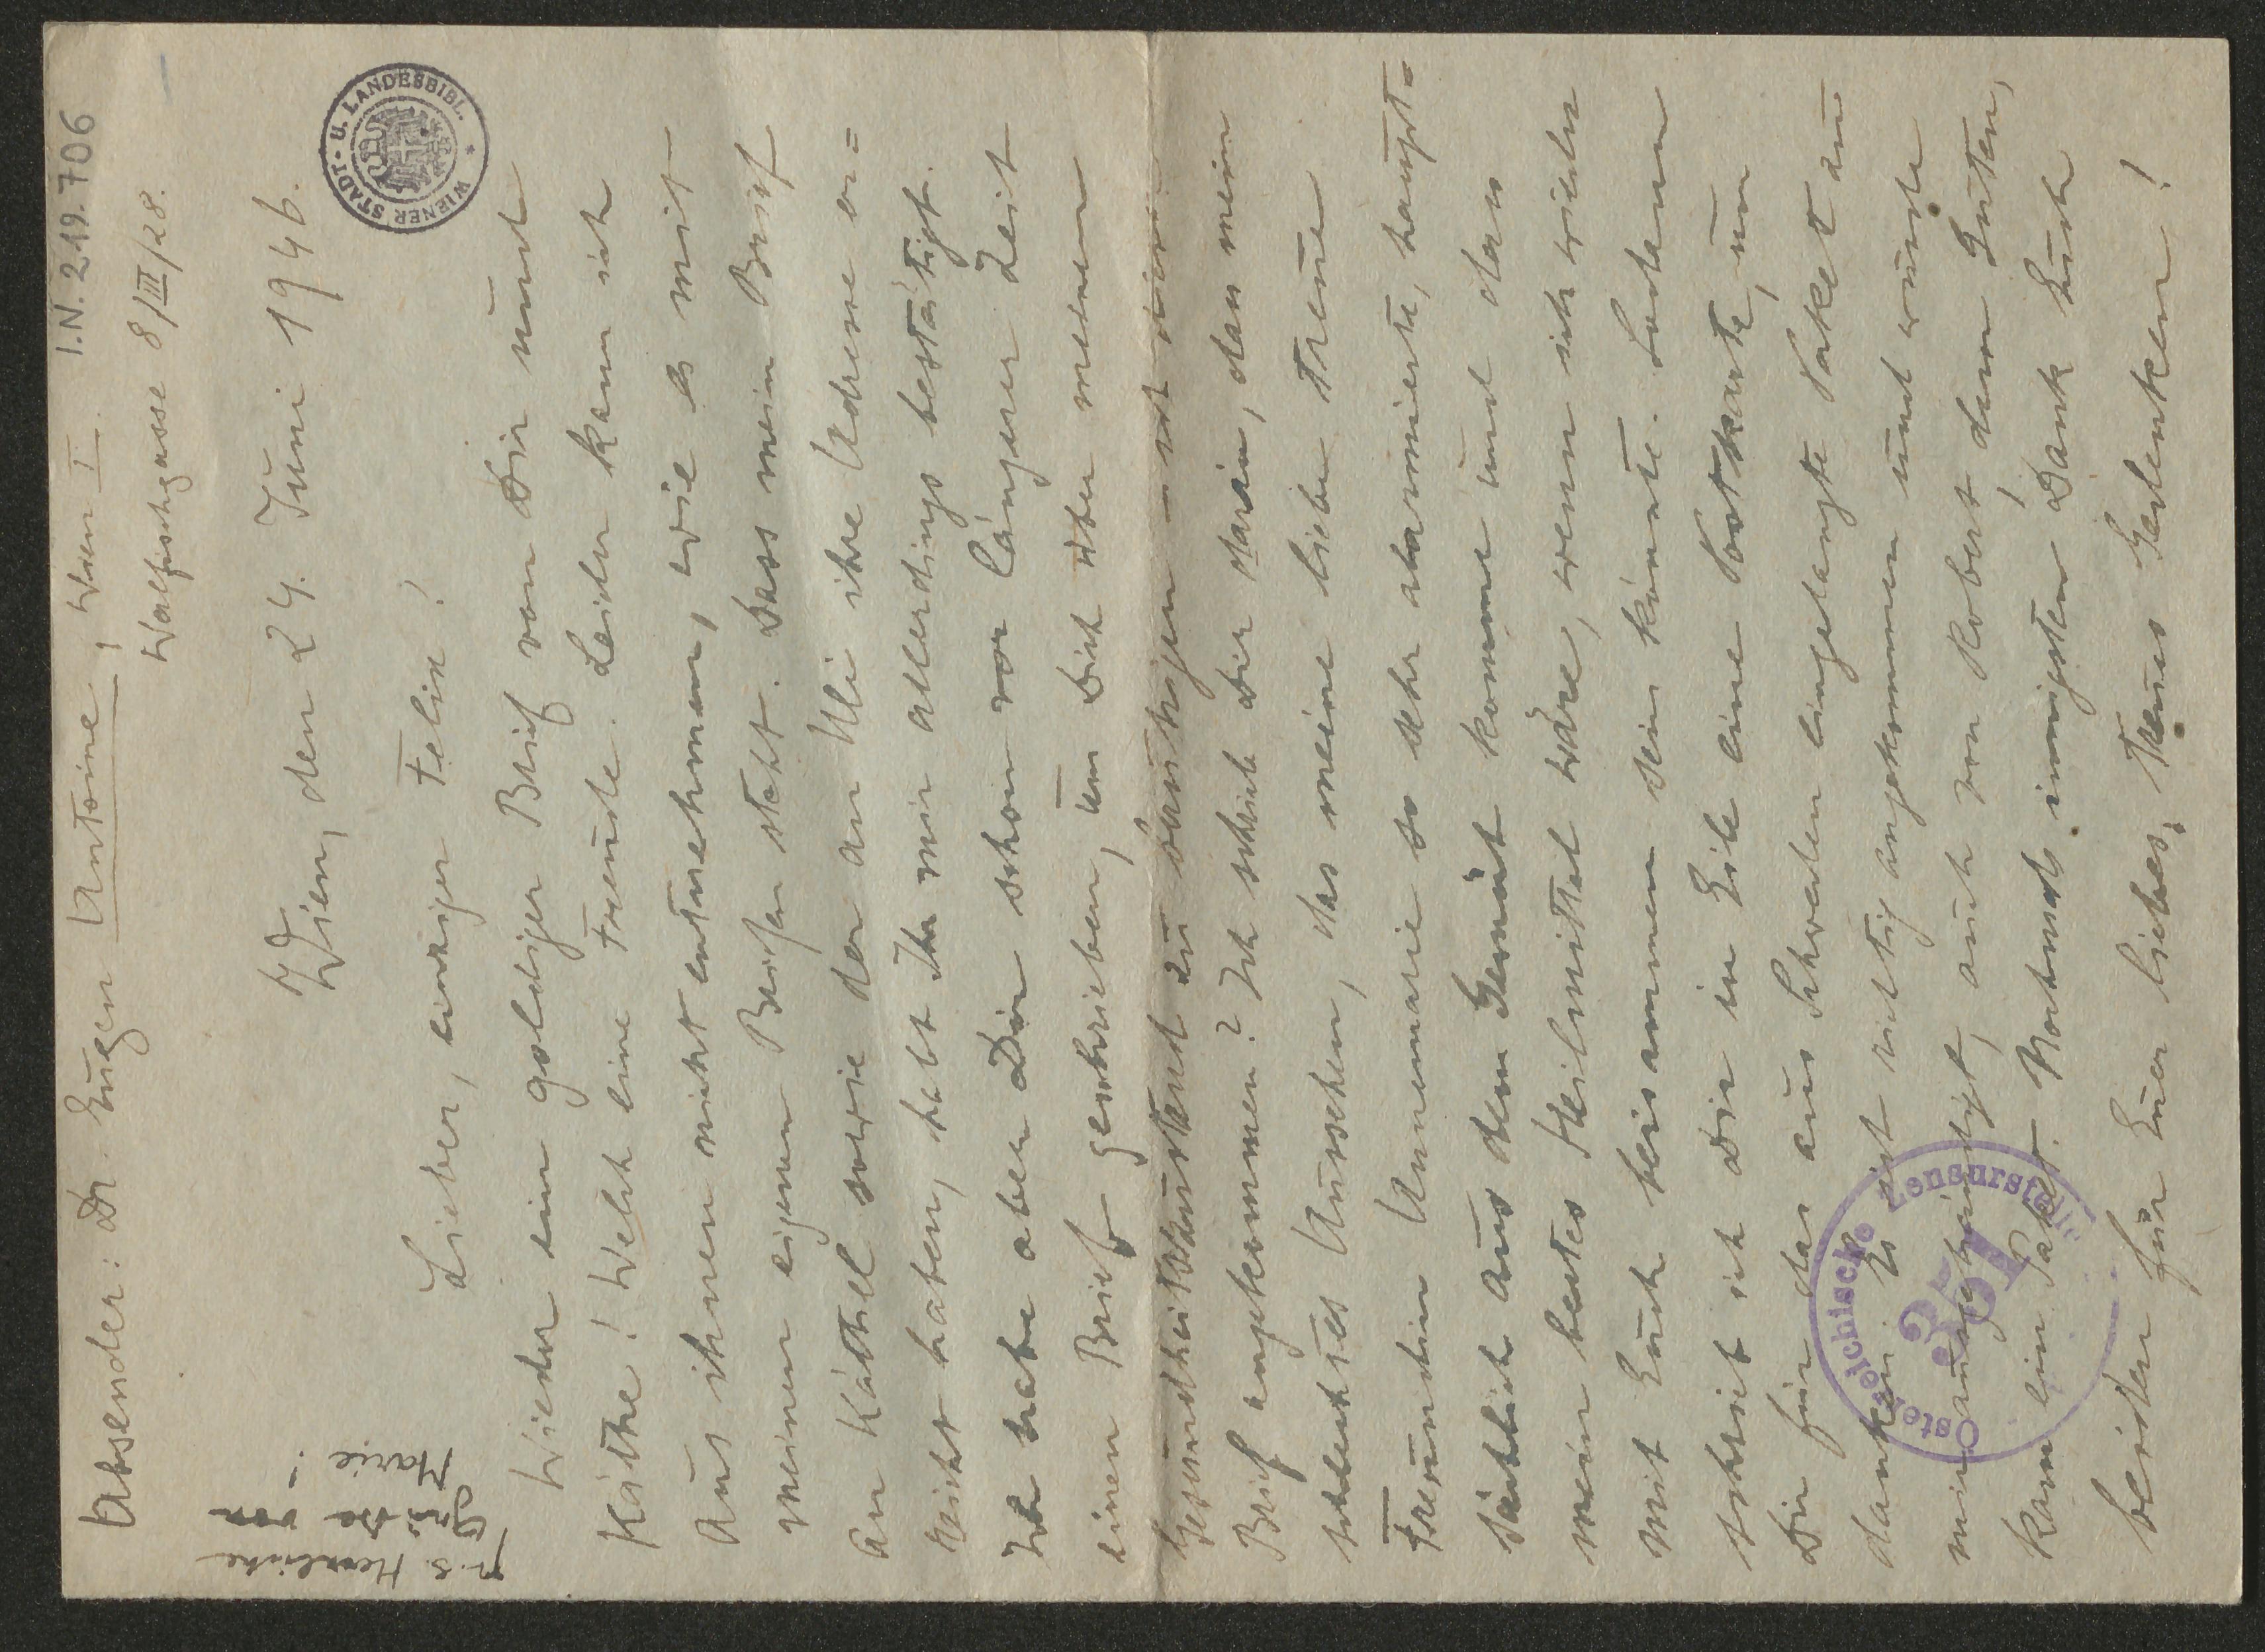 Absender: Dr. Eugen Antoine, Wien I.
I.N. 219.706
Walfischgasse 8/III/28.
WIENER STADT- U. LANDESBIBL.
Wien, den 24. Juni 1946.
Lieber, einziger Felix!
Wieder ein goldiger Brief von Dir und
Käthe! Welch eine Freude. Leider kann ich
aus ihnen nicht entnehmen, wie es mit
meinen eigenen Briefen steht. Dass mein Brief
an Käthel sowie der an Uli ihre Adresse er=
reicht haben, habt Ihr mir allerdings bestätigt.
Ich habe aber Dir schon vor längerer Zeit
einen Brief geschrieben, um Dich über meinen
Gesundheitszustand zu beruhigen – ist dieser
Brief angekommen? Ich schrieb Dir darin, dass mein
schlechtes Aussehen, das meine liebe treue
Freundin Annemarie so sehr alarmierte, haupt=
sächlich aus dem Gemüt komme und dass
mein bestes Heilmittel wäre, wenn ich wieder
mit Euch beisammen sein könnte. Sodann
schrieb ich Dir in Eile eine Postkarte, um
Dir für das aus Schweden eingelangte Paket zu
danken. Es ist richtig angekommen und wurde
mir ausgehändigt, auch von Robert, dem Guten,
kam ein Paket. Nochmals innigsten Dank Euch
beiden für Euer liebes, treues Gedenken!
Österreichische Zensurstelle